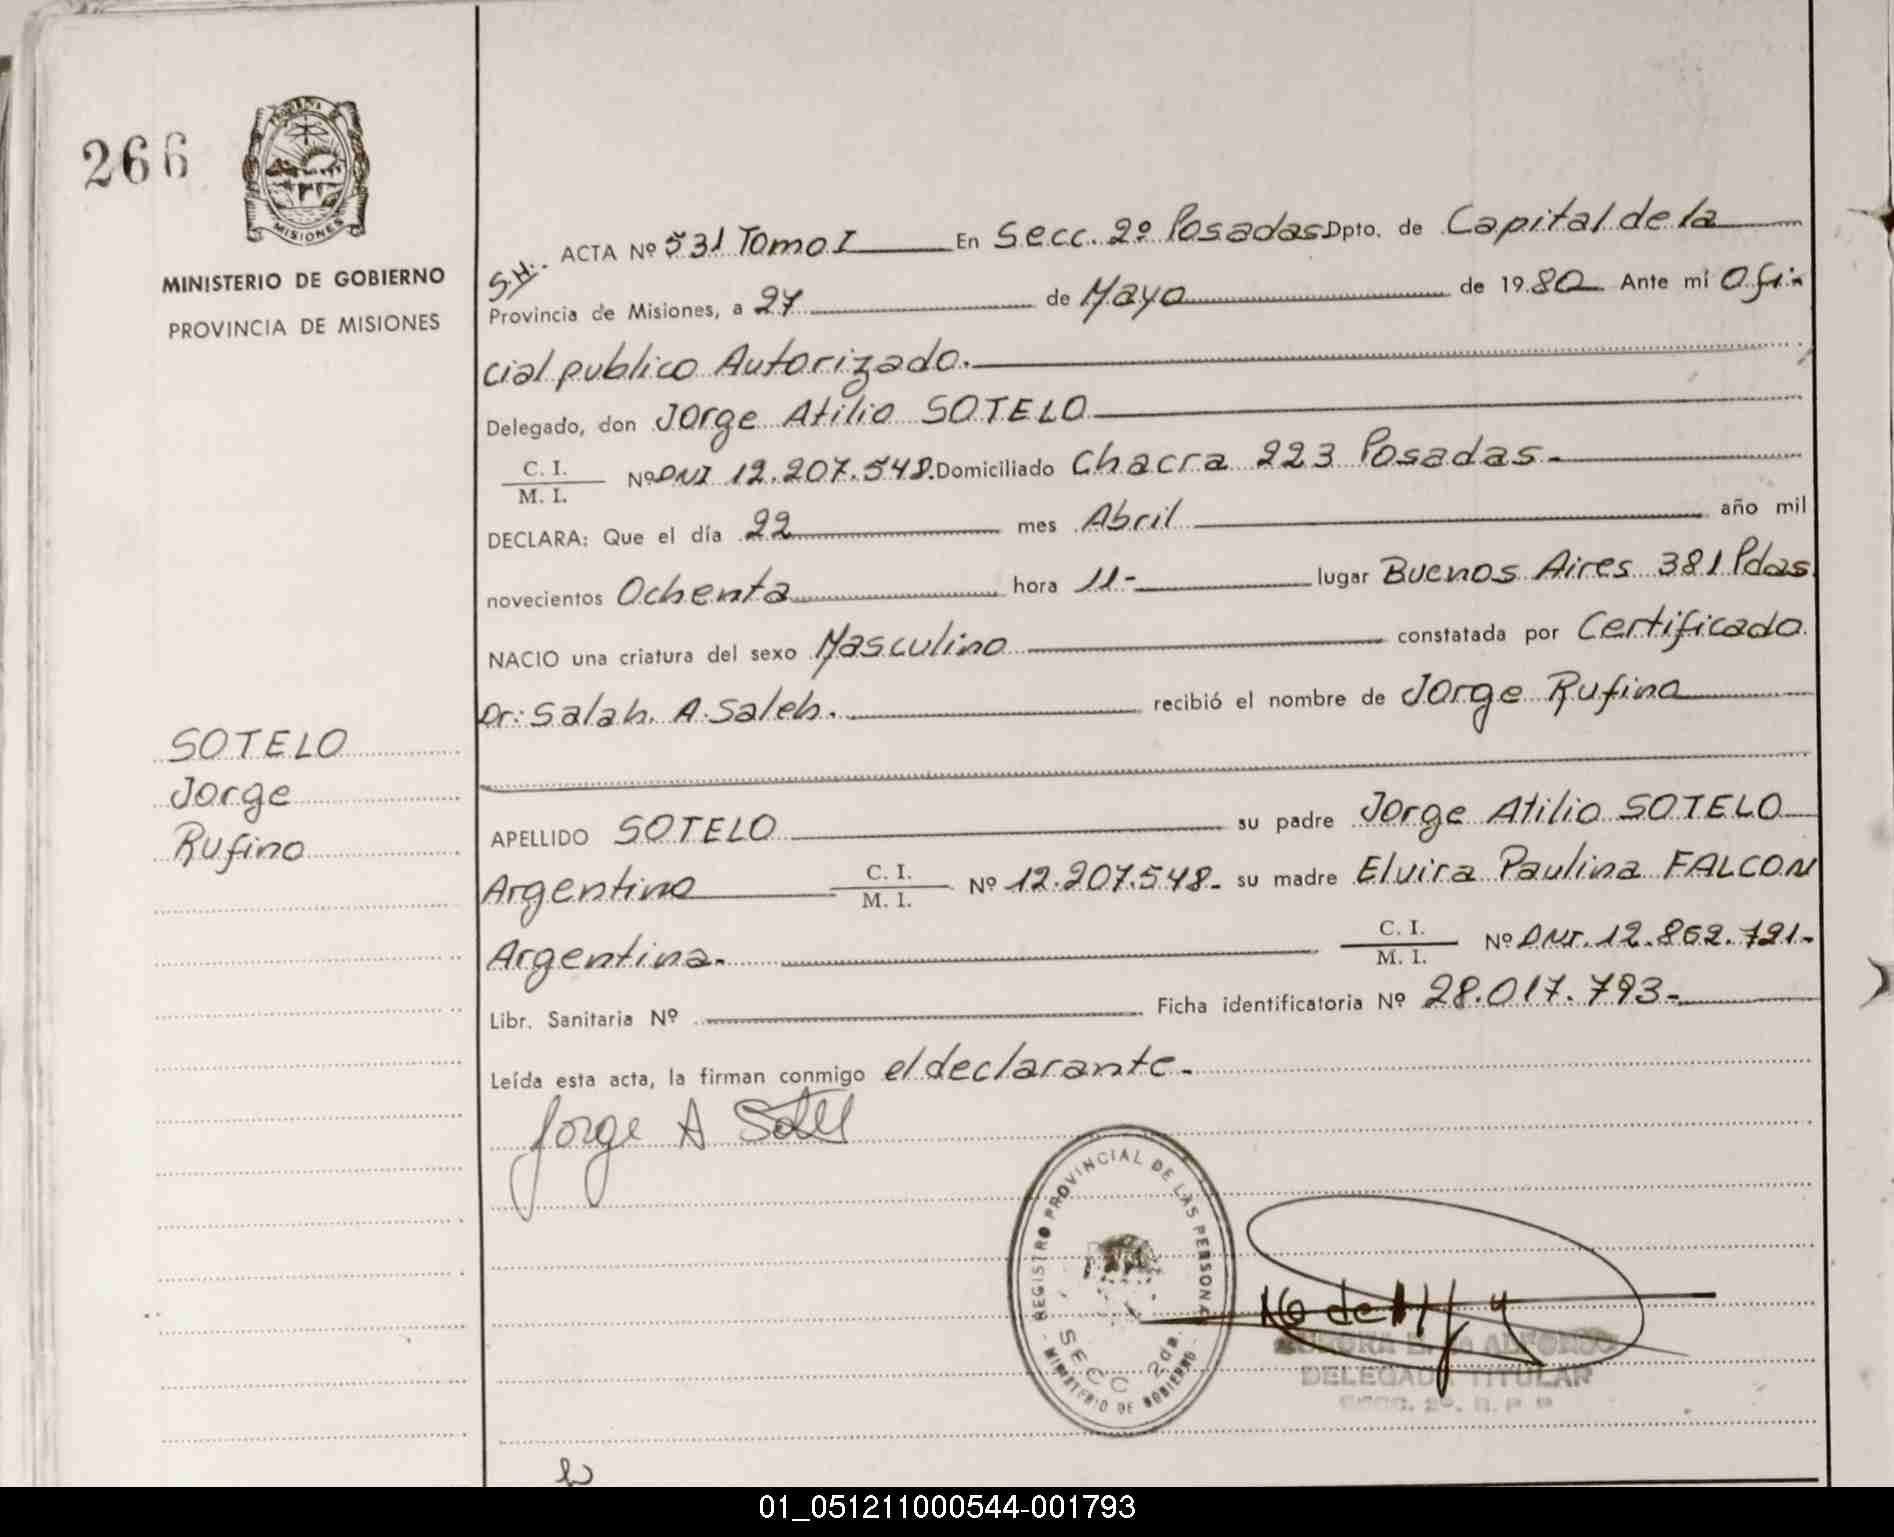 266
MISIONES
MINISTERIO DE GOBIERNO
PROVINCIA DE MISIONES
SOTELO
Jorge
Rufino
S.H.
ACTA Nº 531 Tomo I En Secc. 2º Posadas Dpto. de Capital de la
Provincia de Misiones, a 27 de Mayo de 1980 Ante mí Ofi-
cial publico Autorizado.
Delegado, don Jorge Atilio SOTELO
C. I.
M. I.
Nº DNI 12.207.548. Domiciliado Chacra 223 Posadas.
DECLARA: Que el día 22 mes Abril año mil
novecientos Ochenta hora 11- lugar Buenos Aires 381 Pdas.
NACIO una criatura del sexo Masculino constatada por Certificado
Dr: Salah. A. Saleh. recibió el nombre de Jorge Rufino
APELLIDO SOTELO su padre Jorge Atilio SOTELO
Argentino C. I. M. I. Nº 12.207.548- su madre Elvira Paulina FALCON
Argentina. C. I. M. I. Nº DNI. 12.862.721-
Libr. Sanitaria Nº Ficha identificatoria Nº 28.017.793-
Leída esta acta, la firman conmigo el declarante.
Jorge A Sotelo
REGISTRO PROVINCIAL DE LAS PERSONAS
SECC 2da.
MINISTERIO DE GOBIERNO
DELEGADA TITULAR
SECC. 2º. R. P. P.
01_051211000544-001793